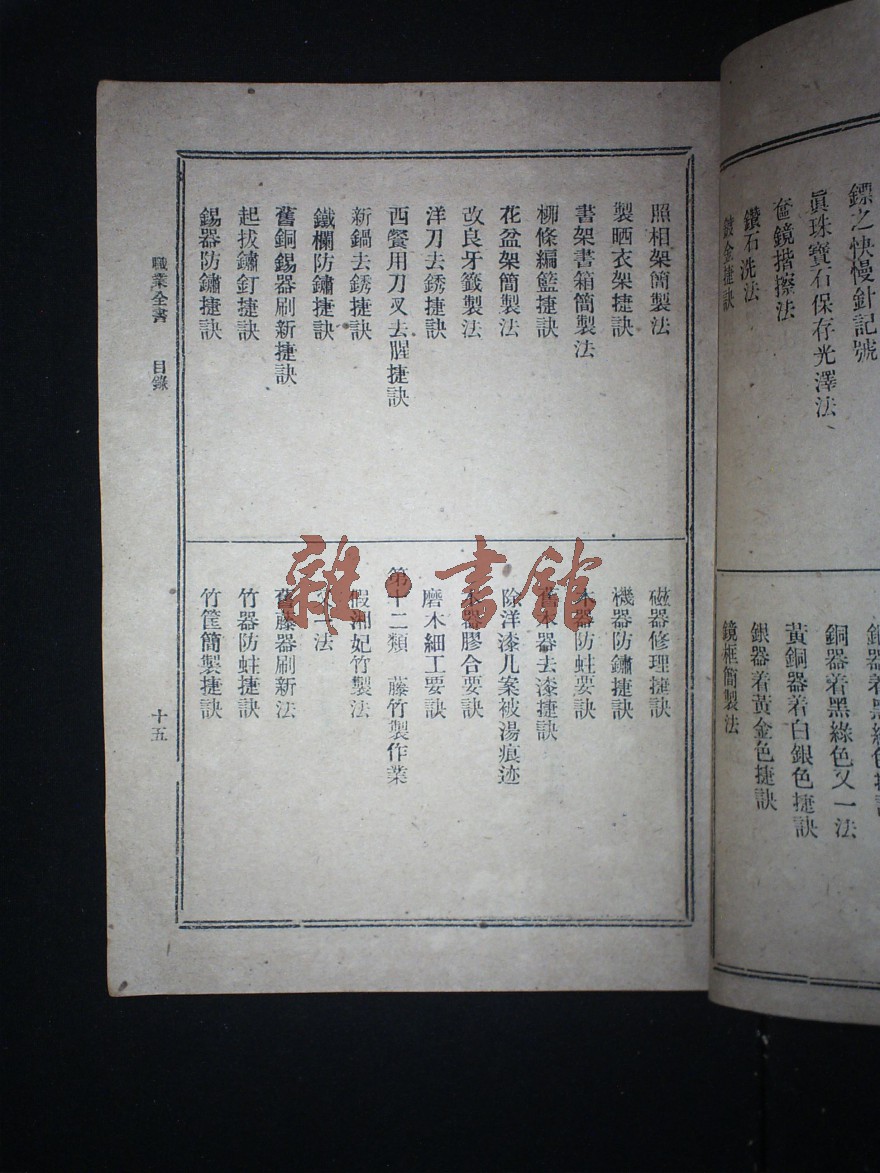 鏢之快慢針記號
眞珠寶石保存光澤法
奩鏡揩擦法
鑽石洗法
鍍金捷訣
銅器着黑綠色又一法
黃銅器着白銀色捷訣
銀器着黃金色捷訣
鏡框簡製法
照相架簡製法
製晒衣架捷訣
書架書箱簡製法
柳條編籃捷訣
花盆架簡製法
改良牙籤製法
洋刀去銹捷訣
西餐用刀叉去腥捷訣
新鍋去銹捷訣
鐵欄防鏽捷訣
舊銅錫器刷新捷訣
起拔鏽釘捷訣
錫器防鏽捷訣
磁器修理捷訣
機器防鏽捷訣
木器防蛀要訣
舊木器去漆捷訣
除洋漆几案被湯痕迹
木器膠合要訣
磨木細工要訣
第十二類 藤竹製作業
假湘妃竹製法
又一法
舊藤器刷新法
竹器防蛀捷訣
竹筐簡製捷訣
職業全書 目錄
十五
雜·書館